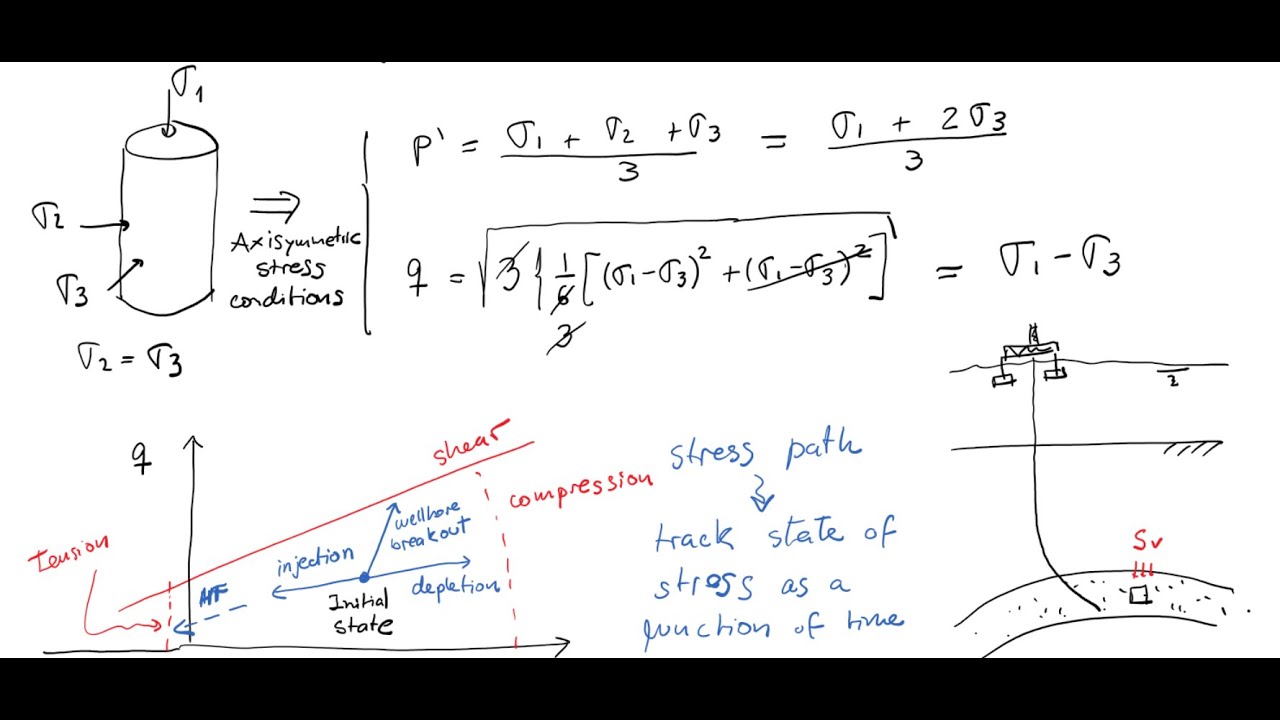 σ1
σ2
σ3
σ2 = σ3
⇒
Axisymmetric
stress
conditions
p' = (σ1 + σ2 + σ3)/3 = (σ1 + 2σ3)/3
q = √(3 {1/6 [(σ1-σ3)² + (σ1-σ3)²]) = σ1 - σ3
3
q
shear
compression
Tension
HF
injection
wellbore
breakout
depletion
Initial
state
stress path
track state of
stress as a
function of time
Sv